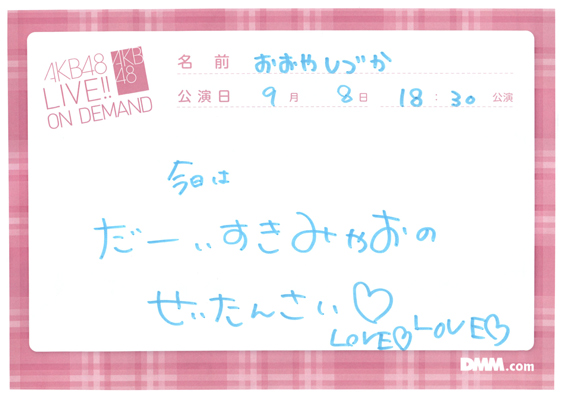 AKB48
LIVE!!
ON DEMAND
AKB
48
名前 おおやしづか
公演日 9月 8日 18:30 公演
今日は
だーいすきみゃおの
せいたんさい♡
LOVE♡LOVE♡
DMM.com